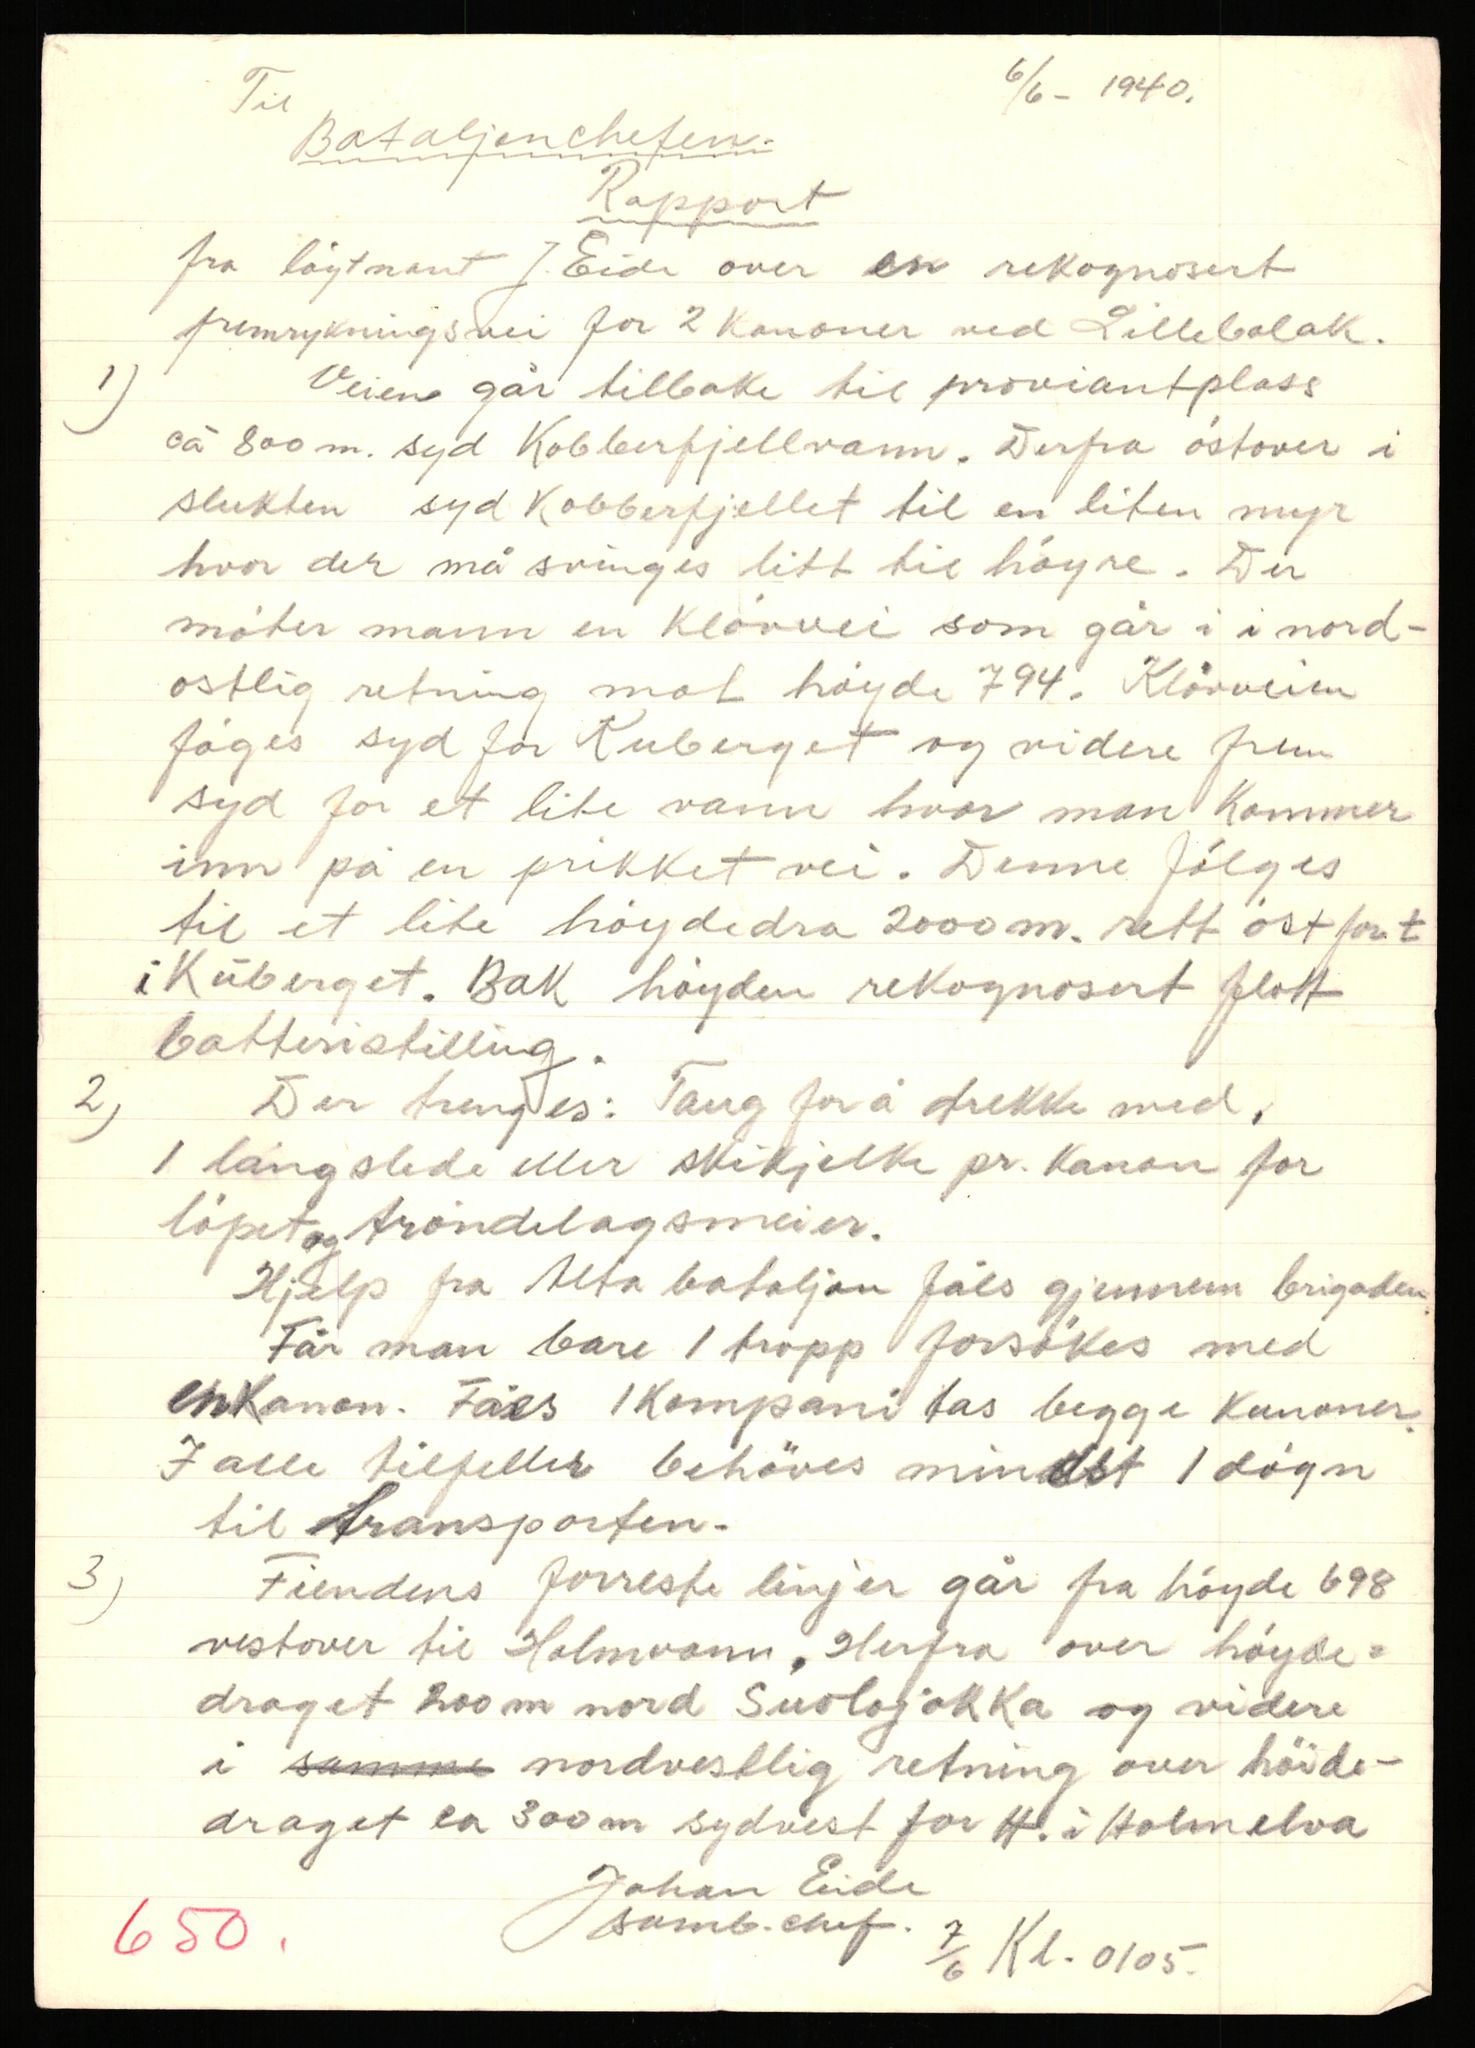 6/6 - 1940.
Til
Bataljonchefen.
Rapport
fra löytnant J. Eide over en rekognosert
fremrykningsvei for 2 kanoner ved Lillebalak.
1) Veien går tilbake til proviantplass
ca 800 m. syd Kobberfjellvann. Derfra östover i
slukten syd Kobberfjellet til en liten myr
hvor der må svinges litt til höyre. Der
möter mann en Klövvei som går i i nord-
ostlig retning mot höyde 794. Klövveien
föges syd for Kuberget og videre frem
syd for et lite vann hvor man kommer
inn på en prikket vei. Denne fölges
til et lite höydedra 2000 m. rett öst for t
i Kuberget. Bak höyden rekognosert flott
batteristilling.
2) Der trenges: Taug for å trekke med,
1 langslede eller skikjelke pr. kanon for
löpet og tröndelagsmeier.
Hjelp fra Alta bataljon fåes gjennem brigaden.
Får man bare 1 tropp forsökes med
en Kanon. Fåes 1 Kompani tas begge kanoner.
I alle tilfeller behöves mindst 1 dögn
til transporten.
3) Fiendens forreste linjer går fra höyde 698
vestover til Holmvann. Herfra over höyde=
draget 200 m nord Suolojokka og videre
i samme nordvestlig retning over höide-
draget ca 300 m sydvest for H. i Holmelva
Johan Eide
samb. chef.
7/6 Kl. 0105.
650.